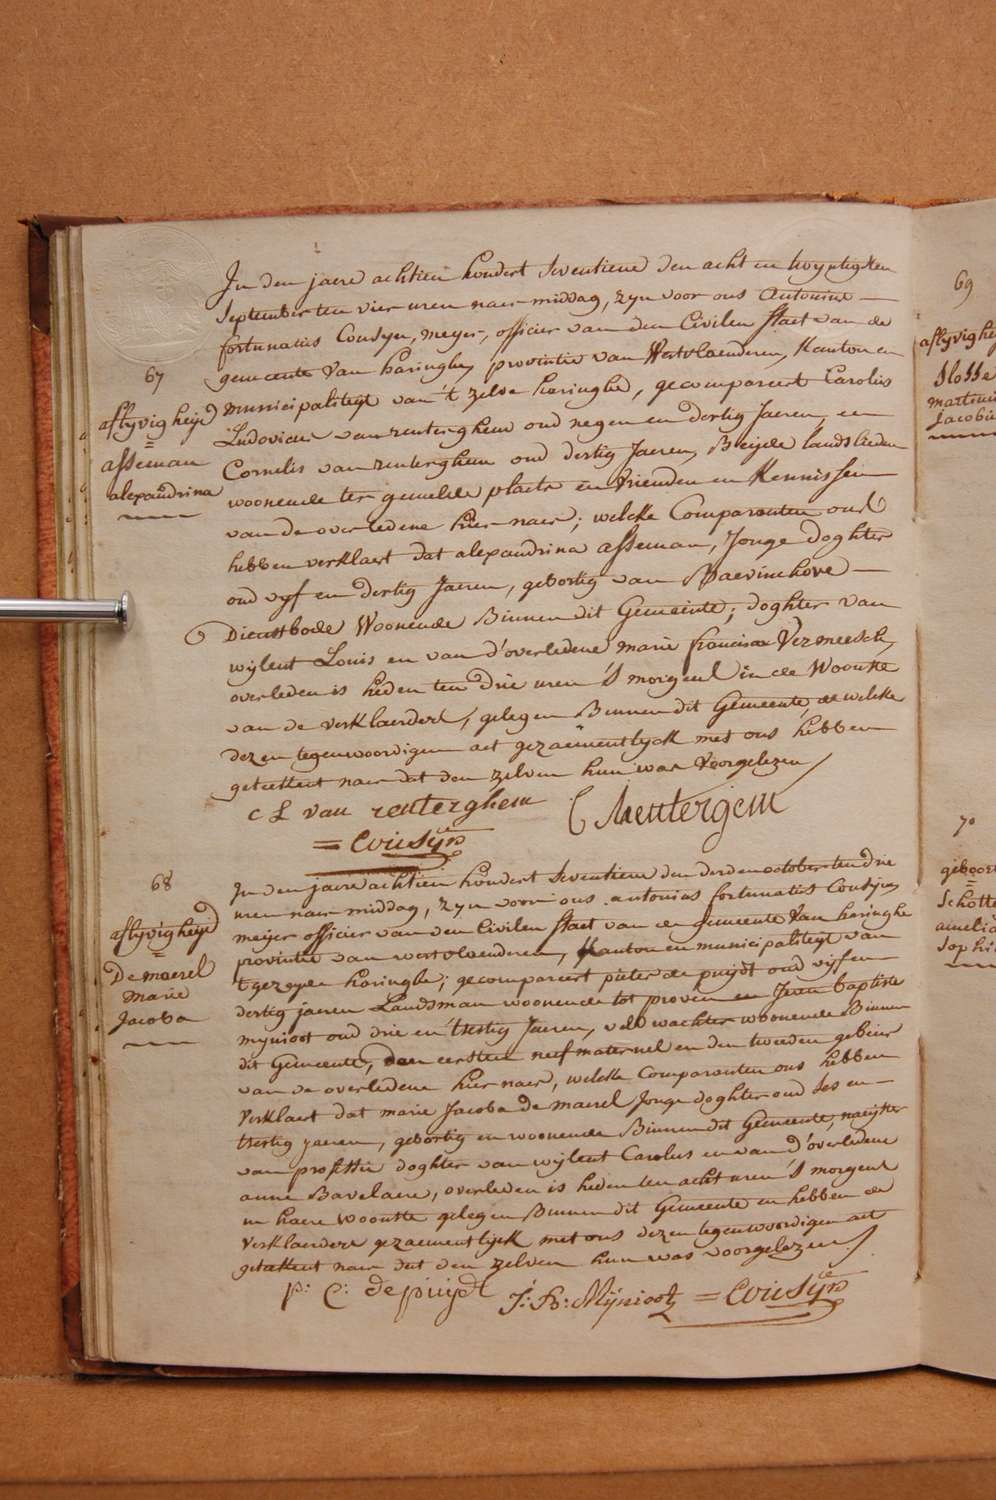 67
aflyvigheyd
=
asseman
alexandrina
In den jaere achtien hondert seventiene den acht en twyntigsten
September ten vier uren naer middag, zyn voor ons Antonius
fortunatus Cousyn, meyer, officier van den Civilen staet van de
gemeente van haringhe, provintie van Westvlaenderen, Kanton en
municipaliteyt van 't zelve haringhe, gecompareert Carolus
Ludovicus van renterghem oud negen en dertig Jaeren, en
Cornelis van renterghem oud dertig Jaeren, Beyde landslieden
woonende ter gemelde plaets en vrienden en Kennissen
van de overledene hier naer; welcke Comparanten ons
hebben verklaert dat alexandrina asseman, Jonge doghter
oud vyf en dertig Jaeren, gebortig van Baevinchove
Dienstbode Woonende Binnen dit Gemeente; doghter van
wylent Louis en van d'overledene marie francisca Vermeesch,
overleden is heden ten drie uren 's morgens in de Woonste
van de verklaerders, gelegen Binnen dit Gemeente, de welcke
dezen tegenwoordigen act gezaementlyck met ons hebben
geteekent naer dat den zelven hun was Voorgelezen
C L van renterghem C Renterghem
= Cousyn
68
aflyvigheyd
=
De maerel
marie
Jacoba
In den jaere achtien hondert seventiene den derden october ten drie
uren naer middag, zyn voor ons antonius fortunatus Cousyn,
meijer officier van den Civilen staet van de gemeente van haringhe
provintie van westvlaenderen, Kanton en municipaliteyt van
't gezeyde haringhe; gecompareert pieter de puijdt oud vyf en
dertig jaeren Landsman woonende tot proven en Jean baptiste
mynioot oud drie en 'tsestig Jaeren, veld wachter woonende Binnen
dit Gemeente, den eersten neef maternel en den tweeden gebeur
van de overledene hier naer, welcke Comparanten ons hebben
verklaert dat marie Jacoba de maerel Jonge doghter oud ses en
tsestig jaeren, gebortig en woonende Binnen dit Gemeente, naeyster
van professie doghter van wylent Carolus en van d'overledene
anne Bavelaere, overleden is heden ten acht uren 's morgens
in haere Woonste gelegen Binnen dit Gemeente en hebben de
verklaerders gezaementlyck met ons dezen tegenwoordigen act
geteekent naer dat den zelven hun was voorgelezen
p: C: de puijdt J: B: Mijnioot = Cousyn
69
aflyvighey
Slosse
martinus
Jacobus
70
geboort
=
Schotte
amelia
Sophi